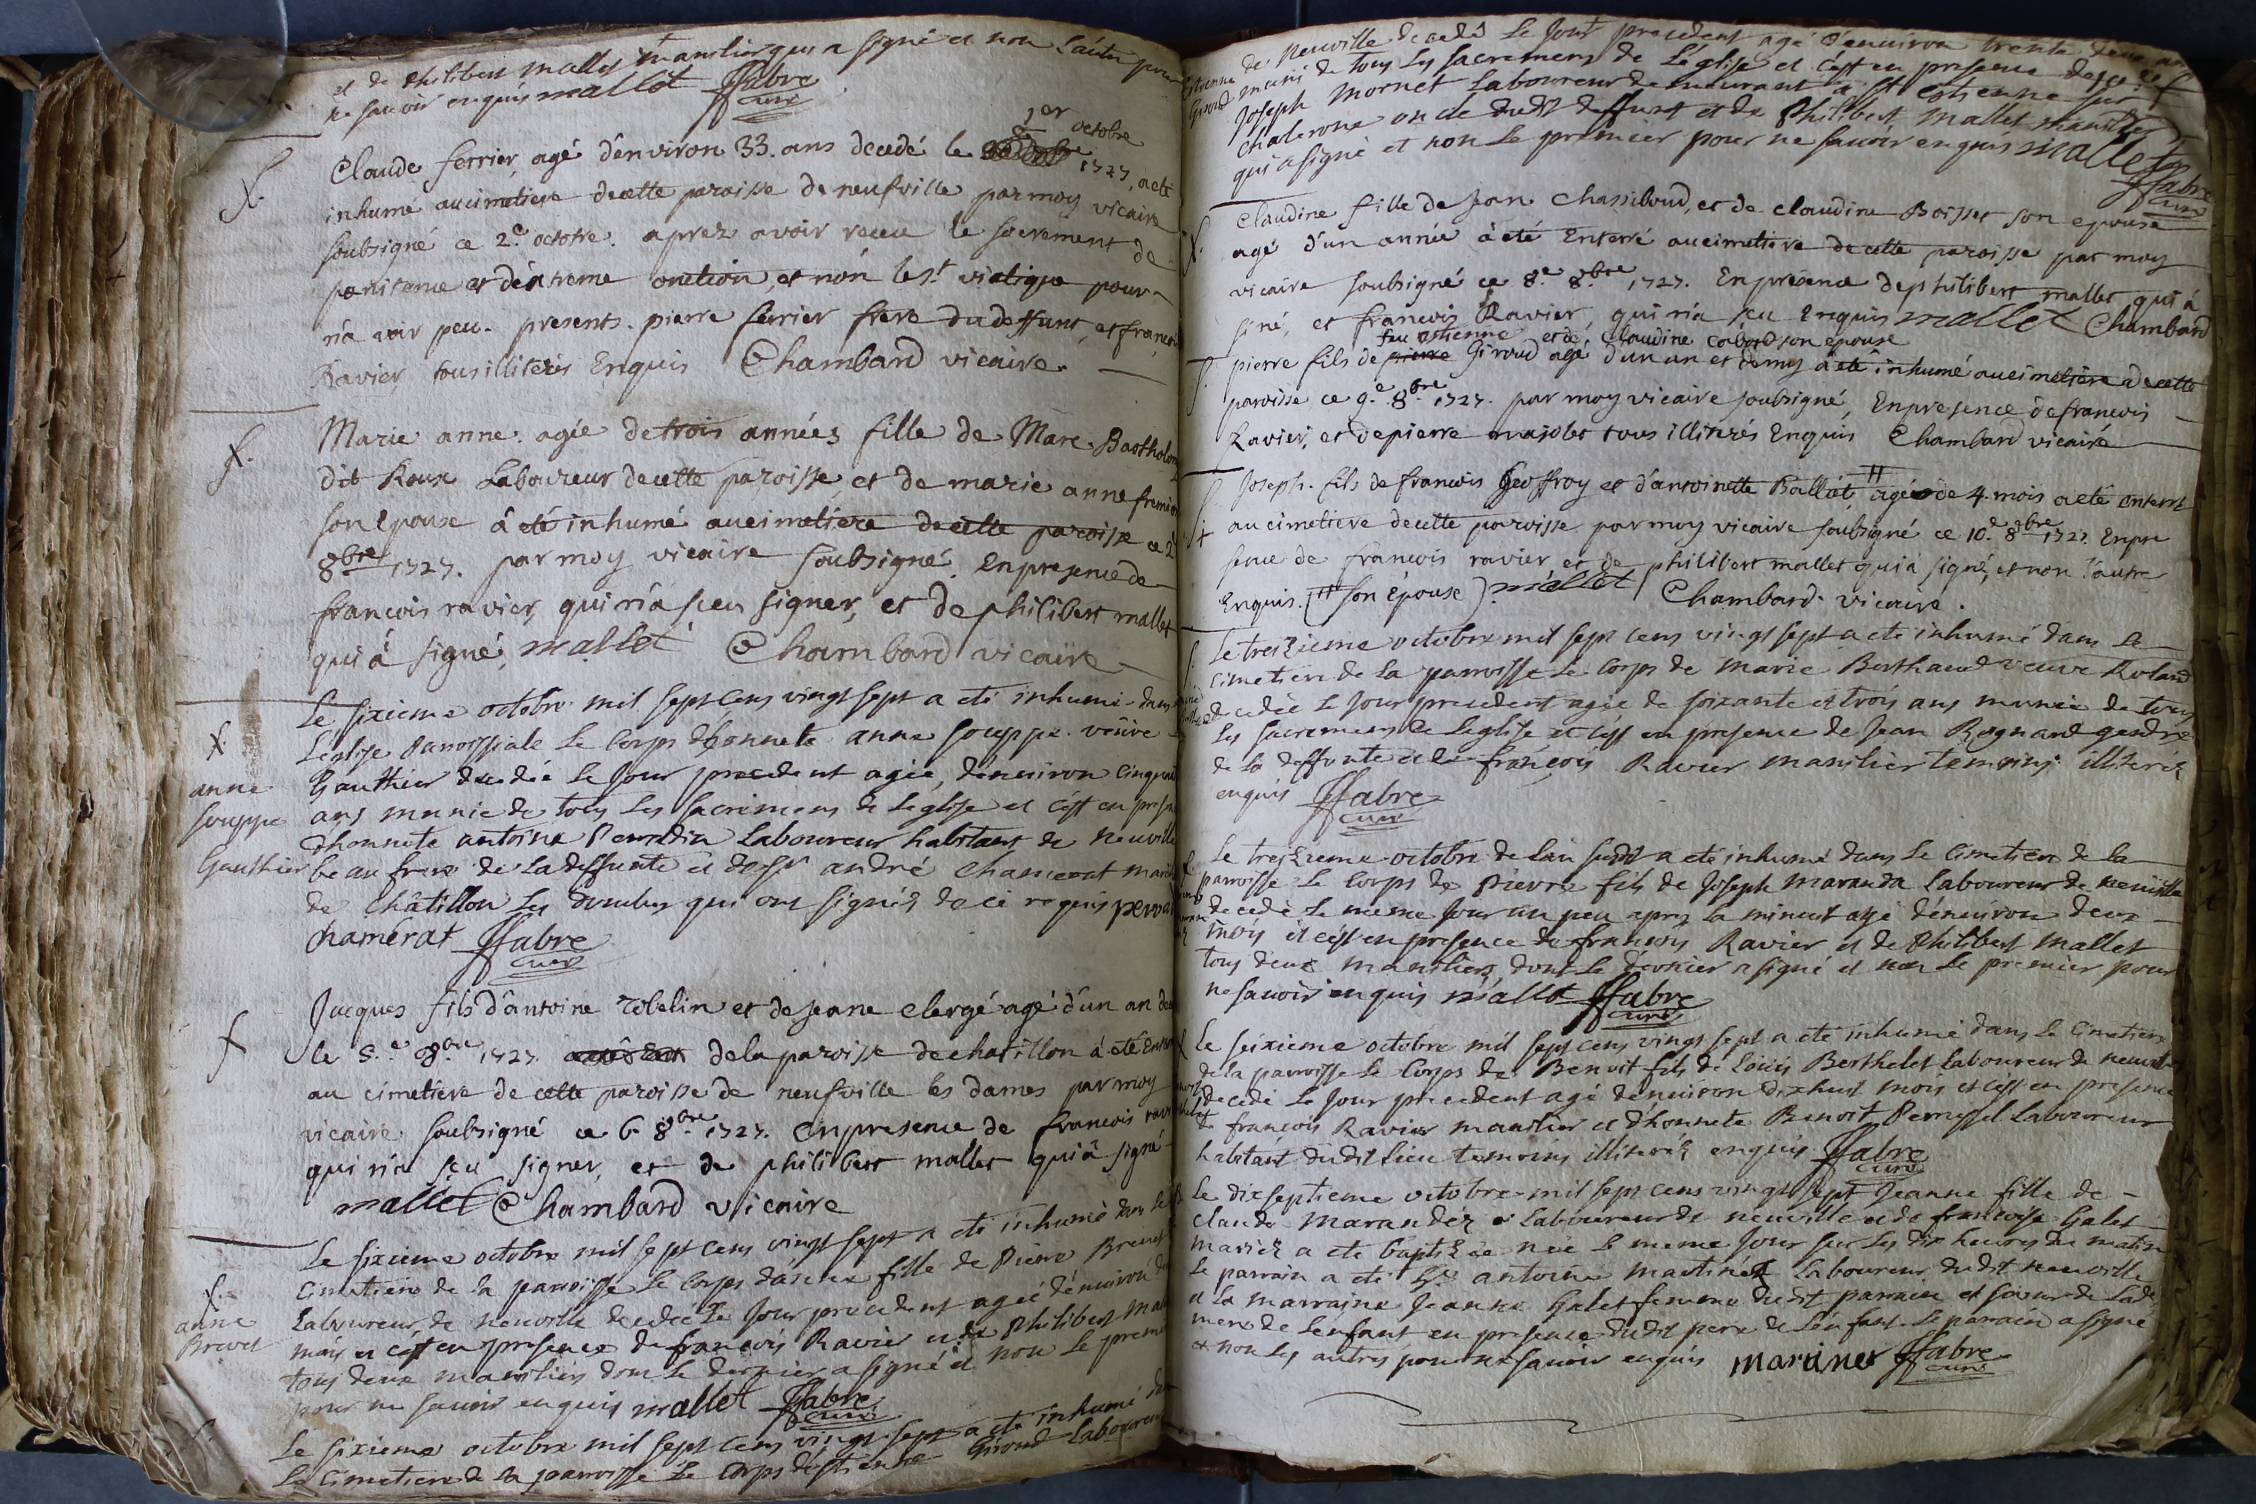 et de Philibert Mallet manilier qui a signé et non l'autre pour
ne savoir enquis mallet ffabre
curé
1er octobre
Claude ferrier, agé d'environ 33. ans decedé le 1727, a eté
inhumé au cimetiere de cette paroisse de neufville par moy vicaire
soubsigné ce 2e octobre. aprez avoir receu le sacrement de
penitence et d'extreme onction, et non le st. viatique pour
n'avoir peu. presents. pierre ferrier frere du deffunt, et francois
Ravier, tous illiterés Enquis Chambard vicaire.
Marie anne. agée de trois années fille de Marc. Bartholom
dit Roux Laboureur de cette paroisse, et de marie anne fremion
son Epouse á eté inhumé au cimetiere de cette paroisse ce 2e
8bre 1727. par moy vicaire soubsigné. En presence de
francois ravier, qui n'a sceu signer, et de philibert mallet
qui á signé, mallet Chambard vicaire
Le sixieme octobre mil sept cens vingt sept a eté inhumé dans
L'eglise Paroissiale le Corps d'honnete anne souppe veuve
anne
souppe
Gauthier
Gauthier decedée le Jour precedent agée, d'environ cinquante
ans munie de tous les sacremens de l'eglise et c'est en presence
d'honnete antoine Perrodin Laboureur habitant de neuville
beau frere de la deffunte et de sr andré Chamerat march
de Châtillon les dombes qui ont signés de ce requis perrodin
chamerat ffabre
curé
Jacques fils d'antoine Robelin et de Jeanne clergé agé d'un an deced
le 5.e 8bre 1727 de la paroisse de chatillon á eté Enterré
au cimetiere de cette paroisse de neufville les dames par moy
vicaire soubsigné ce 6. 8bre. 1727. en presence de francois ravier
qui n'a sçu signer, et de philibert mallet qui á signé
mallet Chambard vicaire
Le sixieme octobre mil sept cens vingt sept a eté inhumé dans le
cimetiere de la paroisse le corps d'anne fille de Pierre Brevet
anne
Brevet
Laboureur de neuville decedée le Jour precedent agée d'environ
mois et c'est en presence de françois Ravier et de Philibert Mallet
tous deux maniliers dont le dernier a signé et non le premier
pour ne savoir enquis mallet ffabre
curé
Le sixieme octobre mil sept cens vingt sept a eté inhumé dans
Le Cimetiere de la paroisse le Corps d'Estienne Giroud Laboureur
Estienne
Giroud
de Neuville decedé le Jour precedent agé d'environ trente deux ans
muni de tous les sacremens de l'église et c'est en presence de
Joseph Mornet Laboureur demeurant a St Estienne sur
chalerone oncle dudit deffunt et de Philibert Mallet manilier
qui a signé et non le premier pour ne savoir enquis mallet
ffabre
curé
Claudine fille de Jean Chassiboud, et de claudine Boisset son epouse
agé d'un année á eté Enterré au cimetiere de cette paroisse par moy
vicaire soubsigné ce 8.e 8bre 1727. En presence de philibert mallet qui á
siné, et francois Ravier, qui n'a sçu Enquis mallet Chambard
feu estienne et de Claudine Cabord son epouse
pierre fils de pierre Giroud agé d'un an et demy a eté inhumé au cimetiere de cette
paroisse ce 9.e 8bre 1727. par moy vicaire soubsigné, En presence de francois
Ravier, et de pierre majolet tous illiterés Enquis Chambard vicaire
Joseph. fils de francois Geoffroy et d'antoinette Ballet, agé de 4. mois a eté enterré
au cimetiere de cette paroisse par moy vicaire soubsigné ce 10.e 8bre 1727. En pre
sence de francois ravier, et de philibert mallet qui á signé, et non l'autre
Enquis. (son Epouse) mallet Chambard vicaire.
Le treizieme octobre mil sept cens vingt sept a eté inhumé dans le
cimetiere de la paroisse le corps de Marie Berthaud veuve Roland
decedée le Jour precedent agée de soixante et trois ans munie de tous
les sacremens de l'eglise et c'est en presence de Jean Rognard gendre
de la deffunte et de françois Ravier manilier temoins illiterés
enquis ffabre
curé
Le treizieme octobre de l'an susdit a eté inhumé dans le cimetiere de la
paroisse le corps de Pierre fils de Joseph Maranda laboureur de neuville
decedé le meme Jour un peu apres la minuit agé d'environ deux
mois et c'est en presence de françois Ravier et de Philibert Mallet
tous deux maniliers dont le dernier a signé et non le premier pour
ne savoir enquis mallet ffabre
curé
Le seizieme octobre mil sept cens vingt sept a eté inhumé dans le Cimetiere
de la paroisse le Corps de Benoit fils de Loüis Berthelet laboureur de neuville
decedé le Jour precedent agé d'environ dix huit mois et c'est en presence
de françois Ravier manilier et d'honnete Benoit Perrysset laboureur
habitant dudit lieu temoins illiterés enquis ffabre
curé
Le dixseptieme octobre mil sept cens vingt sept Jeanne fille de
Claude Marandez Laboureur de neuville et de francoise Galet
mariéz a eté baptizée née le meme Jour sur les dix heures du matin
Le parrain a eté antoine Martinet laboureur dudit neuville
et la marraine Jeanne Galet femme dudit parrain et soeur de la de
mere de l'enfant en presence dudit pere de l'enfant. le parrain a signé
et non les autres pour ne savoir enquis martinet ffabre
curé